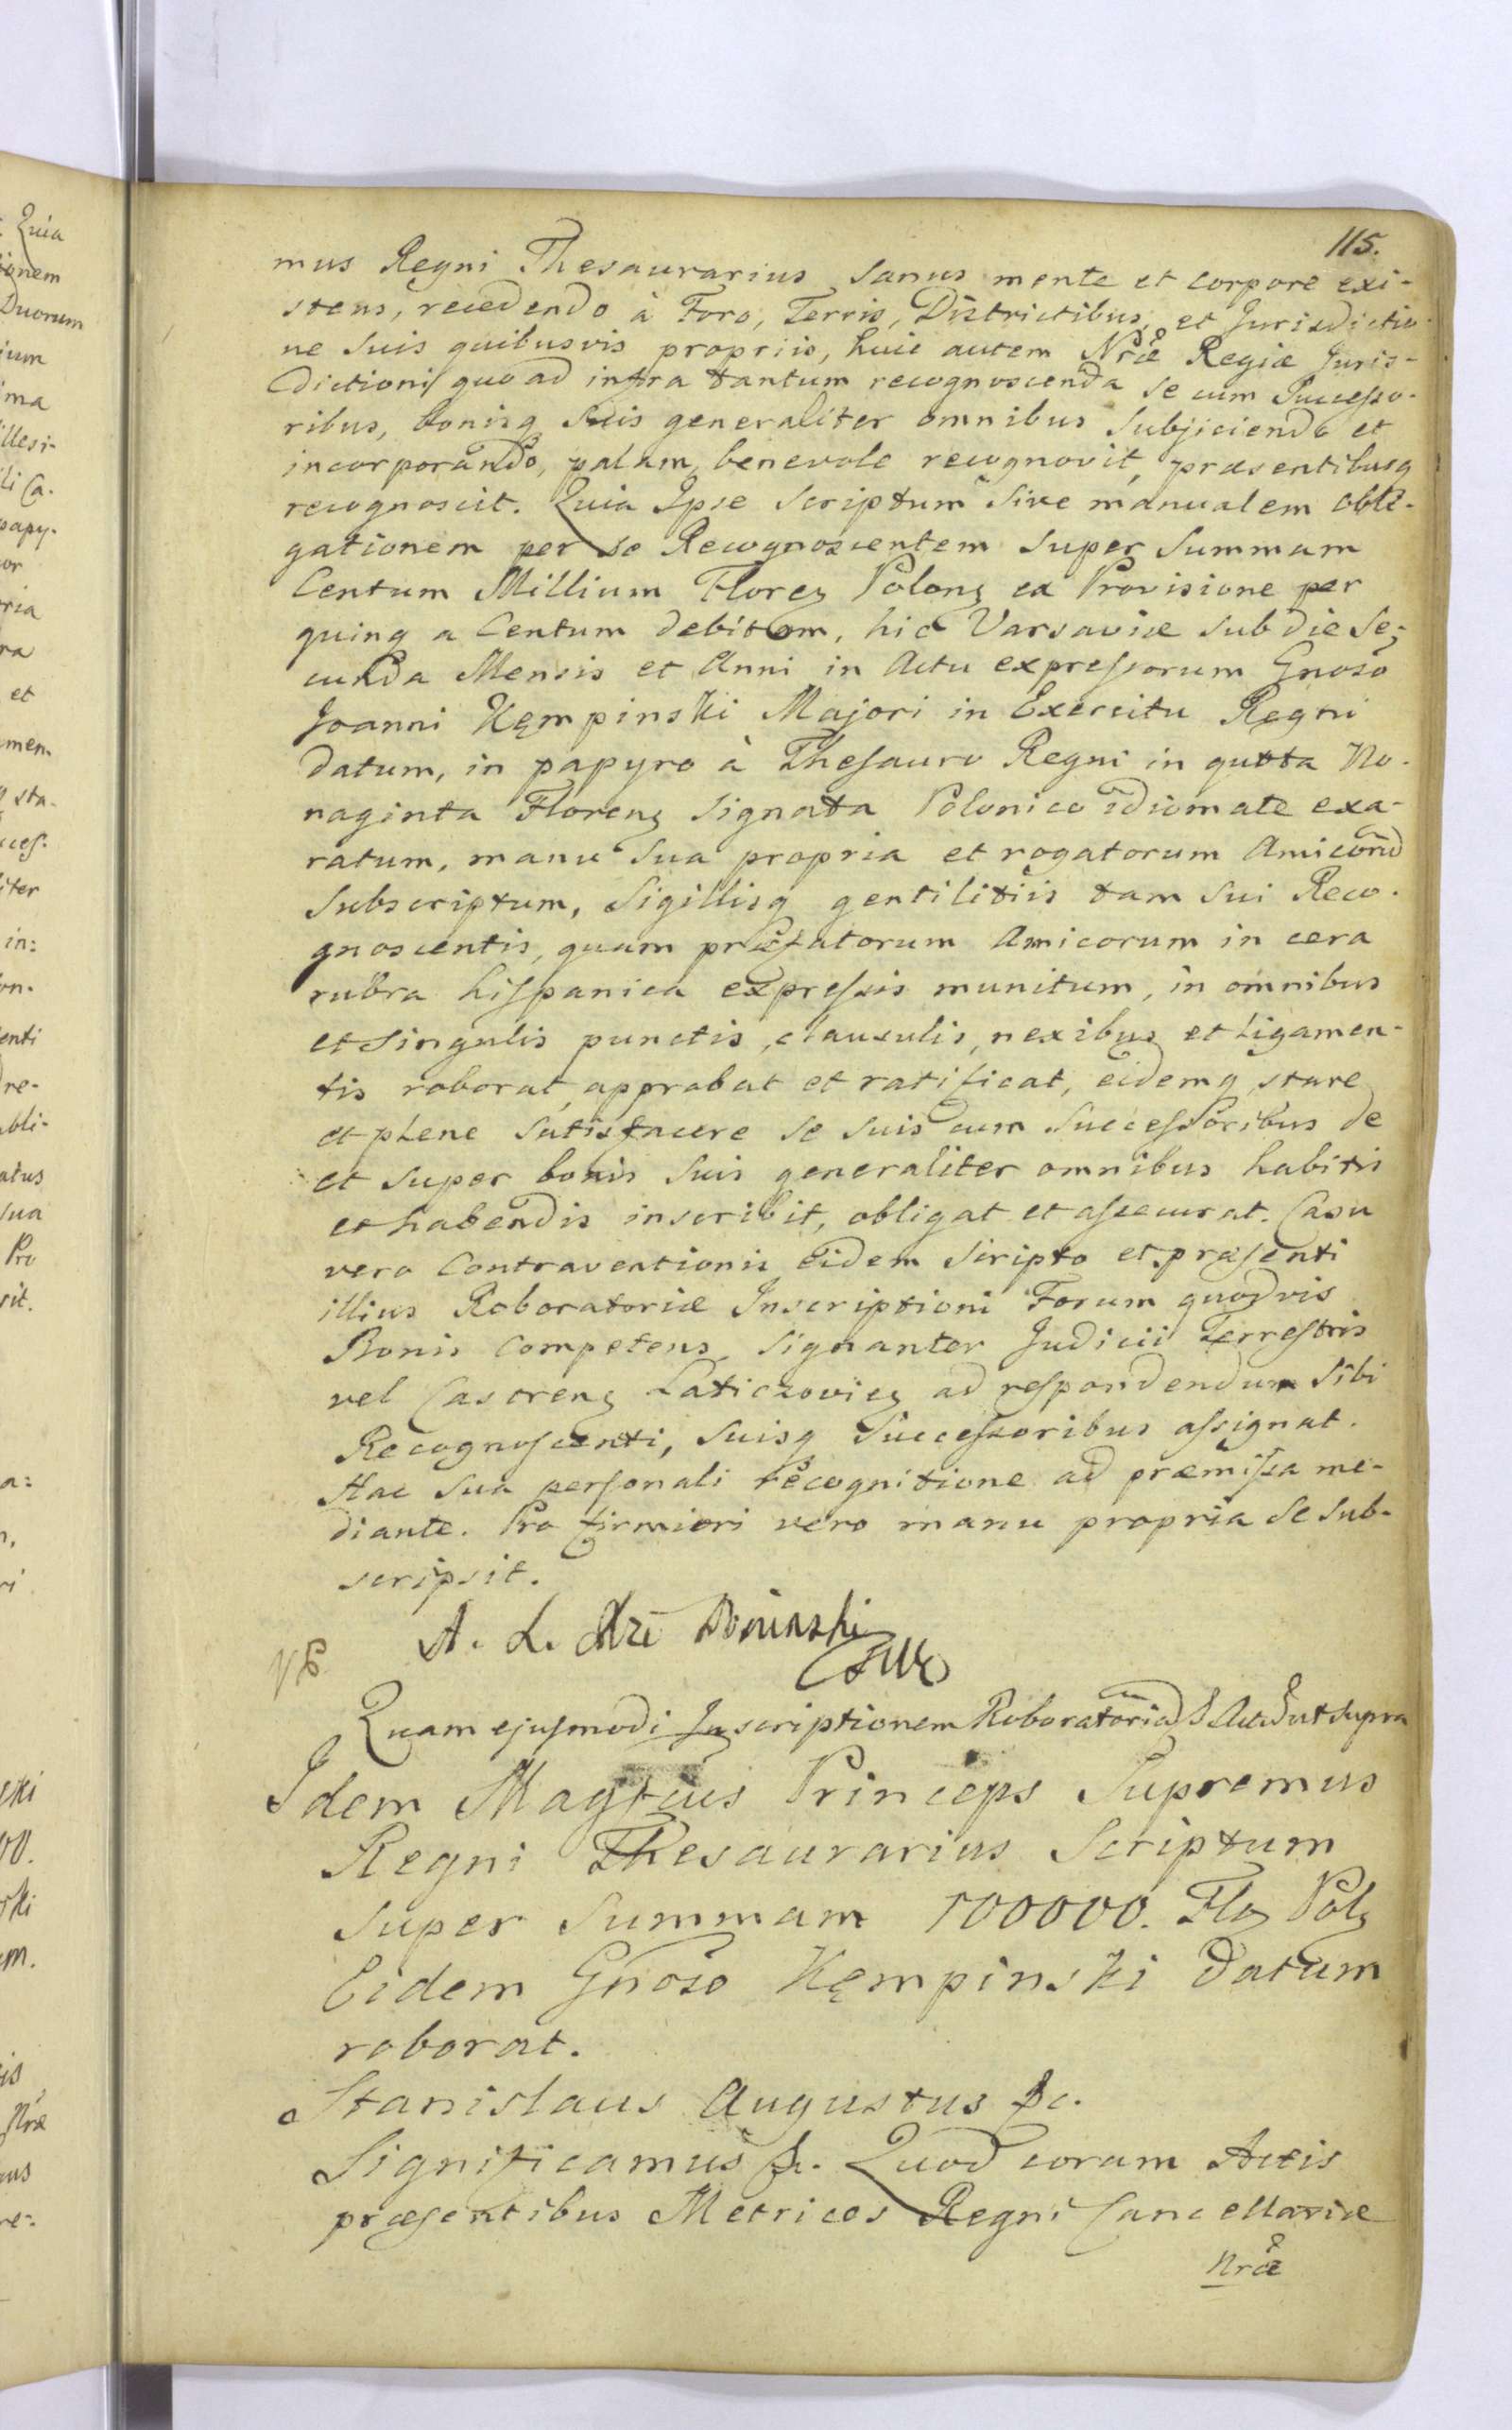 115.
mus Regni Thesaurarius sanus mente et corpore exi-
stens, recedendo à Foro, Terris, Districtibus, et Jurisdictio-
ne suis quibusvis propriis, huic autem Nrae Regiae Juris-
dictioni quo ad infra tantum recognoscenda se cum Successo-
ribus, bonisq suis generaliter omnibus subjiciendo et
incorporando, palam, benevole recognovit, praesentibusq
recognoscit. Quia Ipse scriptum sive manualem obli-
gationem per se Recognoscentem super summam
Centum Millium Floreꝫ Polonꝫ ex Provisione per
quinq a Centum debitam, hic Varsaviae sub die se-
cunda Mensis et Anni in Actu expressorum Gnoso
Joanni Kęmpinski Majori in Exercitu Regni
datum, in papyro à Thesauro Regni in quota No-
naginta Florenꝫ signata Polonico idiomate exa-
ratum, manu sua propria et rogatorum Amicorū
subscriptum, sigillisq gentilitiis tam sui Reco-
gnoscentis, quam praefatorum Amicorum in cera
rubra hispanica expressis munitum, in omnibus
et singulis punctis, clausulis, nexibus et ligamen-
tis roborat, approbat et ratificat, eidemq stare
et plene satisfacere se suis cum successoribus de
et super bonis suis generaliter omnibus habitis
et habendis inscribit, obligat et assecurat. Casu
vero Contraventionis eidem Scripto et praesenti
illius Roboratoriae Inscriptioni Forum quodvis
Bonis Competens, signanter Judicii Terrestris
vel Castrenꝫ Laticzovieꝫ ad respondendum sibi
Recognoscenti, suisq Successoribus assignat.
Hac sua personali recognitione ad praemissa me-
diante. Pro firmiori vero manu propria se sub-
scripsit.
A. L. Xże Poninski
Quam ejusmodi Inscriptionem Roboratoriā Actis ut supra
Idem Magficus Princeps Supremus
Regni Thesaurarius Scriptum
super Summam 100000. Flo Polꝫ
Eidem Gnoso Kęmpinski datum
roborat.
Stanislaus Augustus &c.
Significamus &c. Quod coram Actis
praesentibus Metrices Regni Cancellariae
Nrae